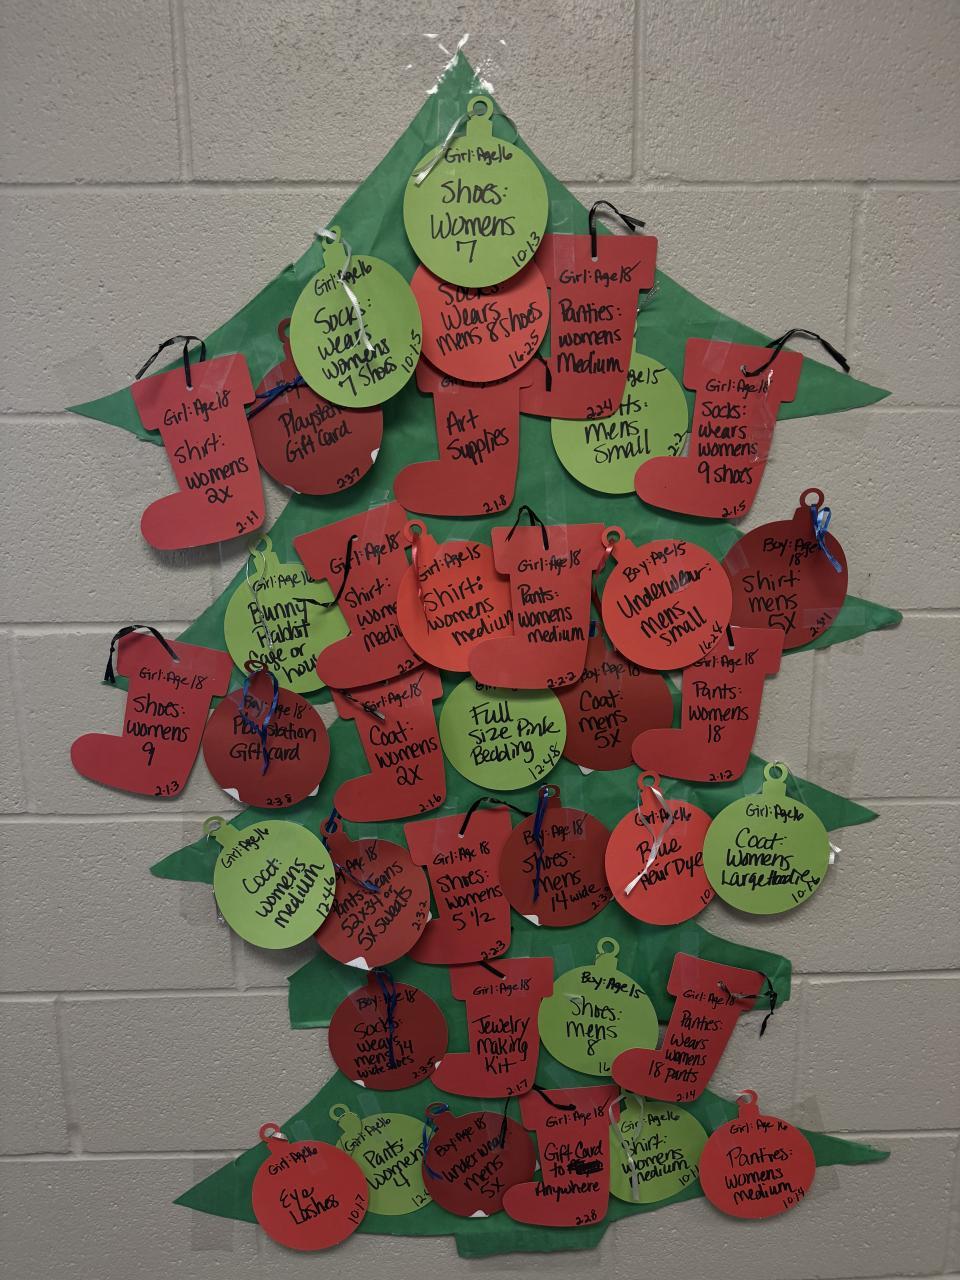 Girl: Age 16
Shoes:
Womens
7
10-1-3
Girl: Age 16
Socks:
wears
womens
7 Shoes
10-1-5
Socks:
Wears
mens 8 Shoes
16-2-5
Girl: Age 18
Panties:
womens
Medium
2-2-4
Girl: Age 18
Shirt:
womens
2X
2-1-1
Playstation
Gift Card
2-3-7
Art
Supplies
2-1-8
Age 15
mens
Small
Girl: Age 18
Socks:
wears
womens
9 shoes
2-1-5
Girl: Age
Bunny
Rabbit
Cage or
Girl: Age 18
Shirt:
Wom
Medi
Girl: Age 15
Shirt:
womens
medium
Girl: Age 18
Pants:
womens
medium
2-2-2
Boy: Age 15
Underwear:
mens
small
16-2-4
Boy: Age
18
Shirt:
mens
5X
Girl: Age 18
Shoes:
womens
9
2-1-3
Boy: Age 18
Playstation
Gift card
2-3-8
Girl: Age 18
Coat:
Womens
2X
2-1-6
Full
Size Pink
Bedding
12-4-8
Boy: Age 18
Coat:
mens
5X
Girl: Age 18
Pants:
Womens
18
2-1-2
Girl: Age 16
Coat:
womens
medium
12-4-6
Age 18
Pants: Jeans
52x34 or
5X Sweats
2-3-2
Girl: Age 18
Shoes:
Womens
5 1/2
2-2-3
Boy: Age 18
Shoes:
Mens
14 wide
Girl: Age 16
Blue
Hair Dye
10
Girl: Age 16
Coat:
Womens
Large Hoodie
Boy: Age 18
Socks:
wears
mens 14
wide shoes
2-3-5
Girl: Age 18
Jewelry
Making
Kit
2-1-7
Boy: Age 15
Shoes:
mens
8
16
Girl: Age 18
Panties:
Wears
Womens
18 pants
2-1-4
Girl: Age 16
Eye
Lashes
10-1-7
Girl: Age 16
Pants:
womens
4
Boy: Age 18
Underwear:
mens
5X
Girl: Age 18
Gift Card
to
Anywhere
2-2-8
Girl: Age 16
Shirt:
womens
medium
10-1-1
Girl: Age 16
Panties:
womens
medium
10-1-4